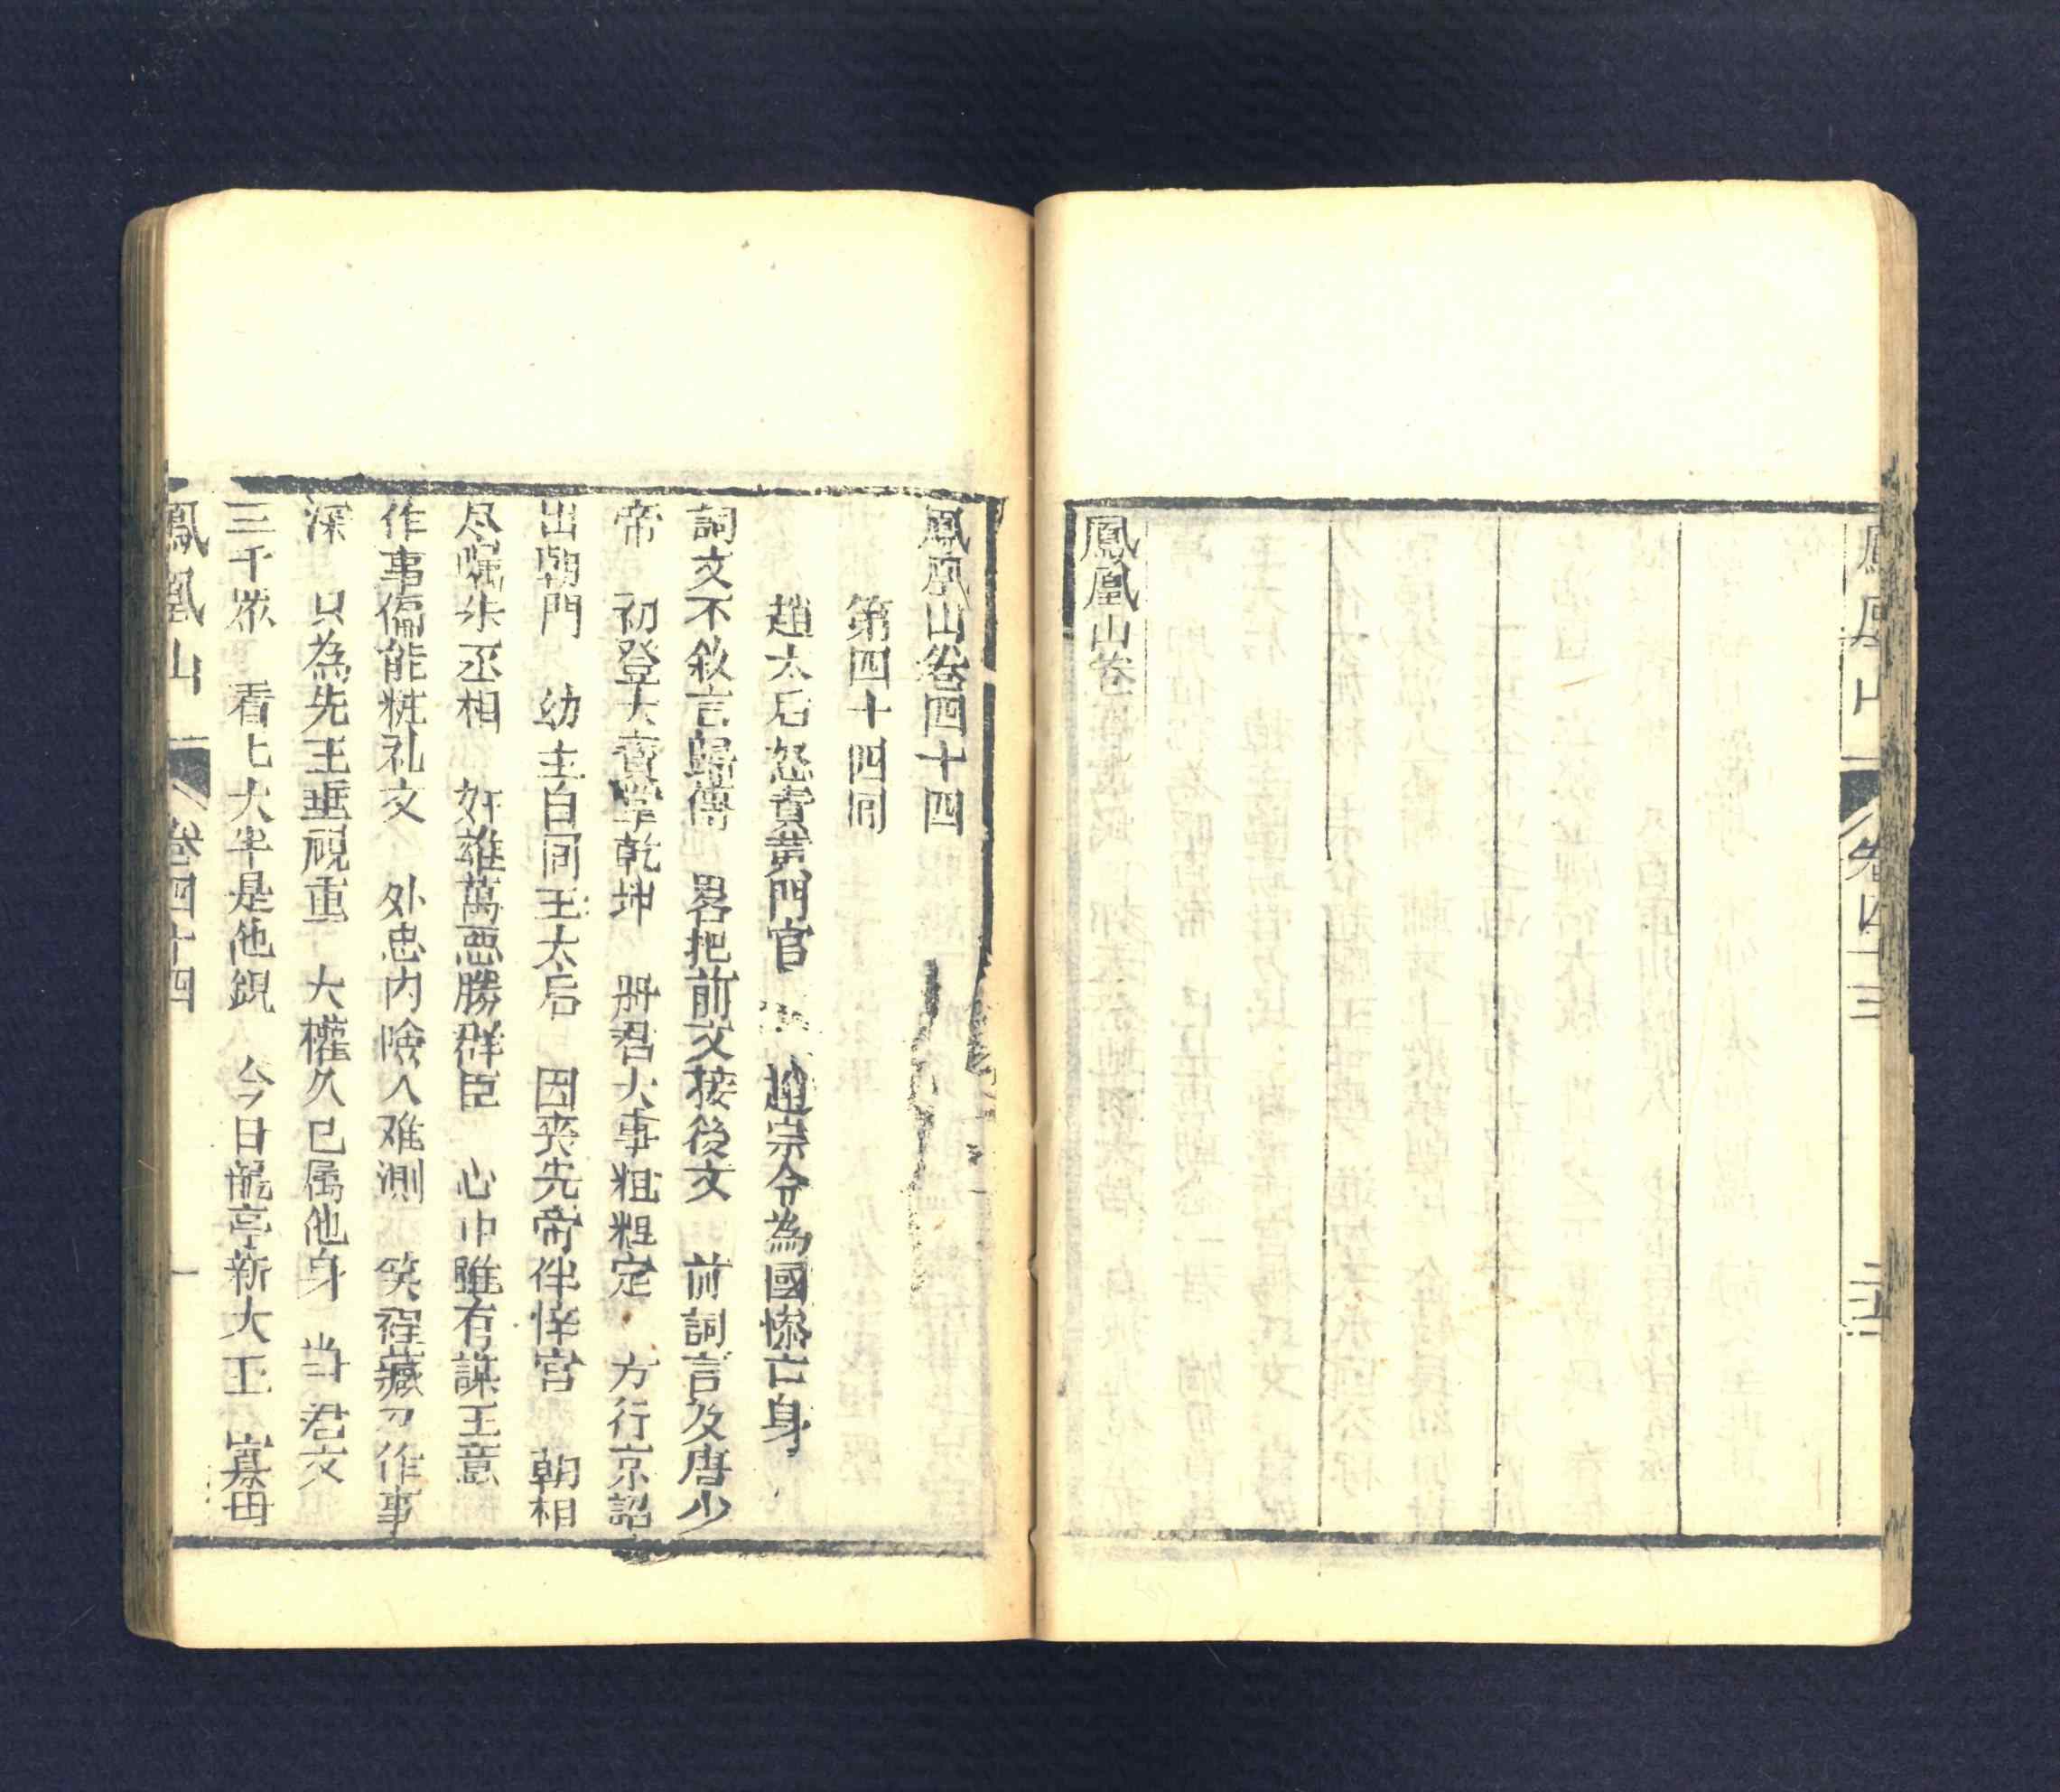 鳳凰山
卷四十三
二五
鳳凰山卷
鳳凰山卷四十四
第四十四囘
趙太后怒責黄門官 趙宗令為國慘亡身
詞文不敘言歸傳 畧把前文接後文 前詞言及唐少
帝 初登大寶掌乾坤 册君大事粗粗定 方行京詔
出朝門 幼主自同王太后 因丧先帝伴悻宫 朝相
尽嘱朱丞相 奸雄萬惡勝群臣 心中雖有謀王意
作事偏能粧礼文 外忠内險人难測 笑裡藏刀作事
深 只為先王垂視重 大權久已属他身 当君文
三千眾 看上大半是他親 今日龍亭新大王 寡母
鳳凰山
卷四十四
一